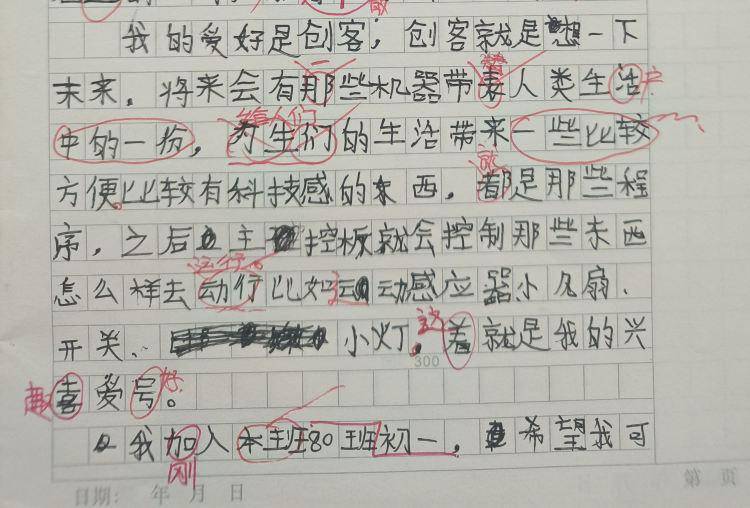 我的爱好是创客，创客就是想一下
未来，将来会有那些机器带着人类生活
中的一份，为生们的生活带来一些比较
方便比较有科技感的东西，都是那些程
序，之后主控板就会控制那些东西
怎么样去动行比如运动感应器小风扇、
开关、小灯，着就是我的兴
喜爱号。
我加入本班80班初一，希望我可
给人们
运行。
这
趣
好
刚
300
日期： 年 月 日
第 页